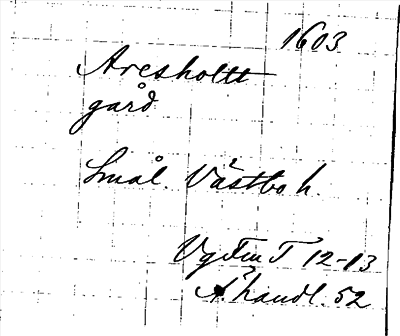 1603
Aresholtt
gård
Smål. Västbo h.
Vg Fm T 12-13
Ahandl. 52